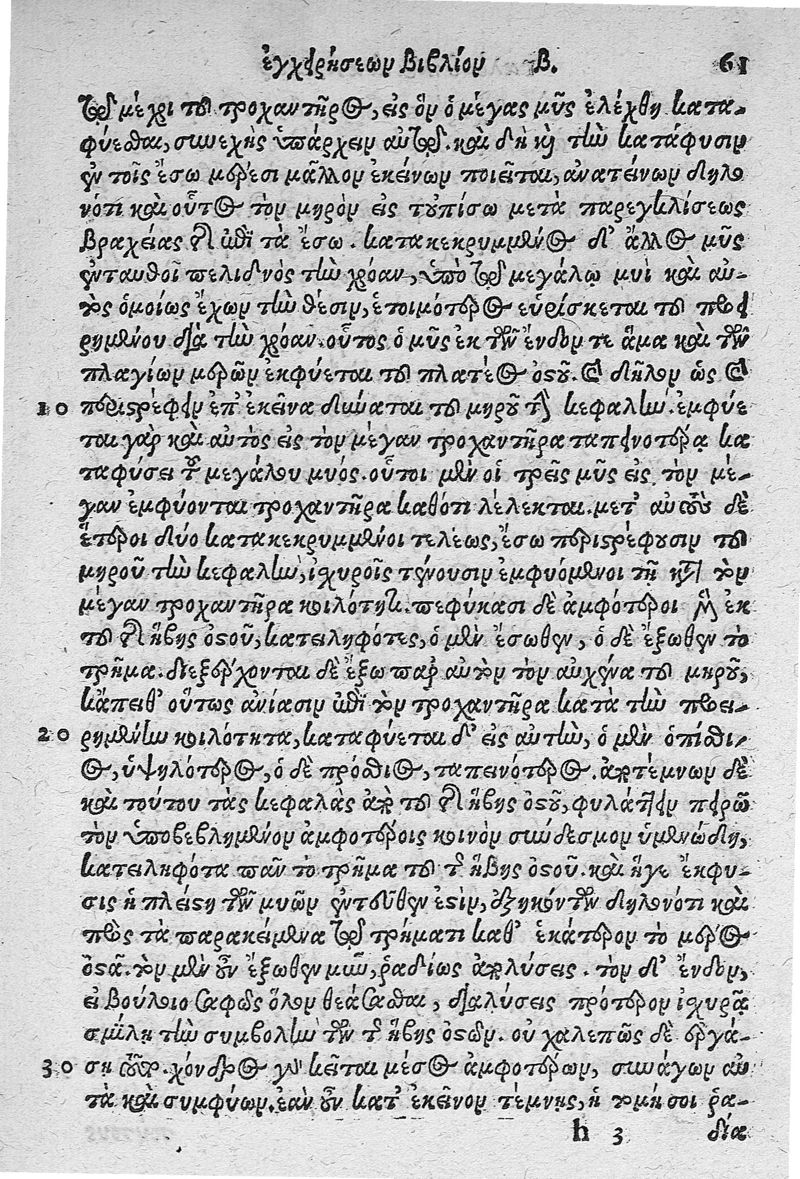 ἐγχειρήσεων Βιβλίον Β. 61
τῷ μέχρι τοῦ τροχαντῆρος, εἰς ὃν ὁ μέγας μῦς ἐλέχθη κατα-
φύεσθαι, συνεχὴς ὑπάρχειν αὐτῷ. καὶ δὴ καὶ τὴν κατάφυσιν
ἐν τοῖς ἔσω μέρεσι μᾶλλον ἐκείνων ποιεῖται, ἀνατείνων δηλο
νότι καὶ οὗτος τὸν μηρὸν εἰς τοὐπίσω μετὰ παρεγκλίσεως
βραχείας τῆς ἐπὶ τὰ ἔσω. κατακεκρυμμένος δ' ἄλλος μῦς
ἐνταυθοῖ πελιδνὸς τὴν χρόαν, ὑπὸ τῷ μεγάλῳ μυὶ καὶ αὐ-
τὸς ὁμοίως ἔχων τὴν θέσιν, ἑτοιμότερος εὑρίσκεται τοῦ προει
ρημένου διὰ τὴν χρόαν. οὗτος ὁ μῦς ἐκ τῶν ἔνδον τε ἅμα καὶ τῶν
πλαγίων μερῶν ἐκφύεται τοῦ πλατέος ὀστοῦ. καὶ δῆλον ὡς καὶ
10 περιστρέφειν ἐπ' ἐκεῖνα δύναται τοῦ μηροῦ τὴν κεφαλήν. ἐμφύε
ται γὰρ καὶ αὐτὸς εἰς τὸν μέγαν τροχαντῆρα ταπεινοτέρᾳ κα
ταφύσει τοῦ μεγάλου μυός. οὗτοι μὲν οἱ τρεῖς μῦς εἰς τὸν μέ-
γαν ἐμφύονται τροχαντῆρα καθότι λέλεκται. μετ' αὐτοὺς δὲ
ἕτεροι δύο κατακεκρυμμένοι τελέως, ἔσω περιστρέφουσιν τοῦ
μηροῦ τὴν κεφαλὴν, ἰσχυροῖς τένουσιν ἐμφυόμενοι τῇ κατὰ τὸν
μέγαν τροχαντῆρα κοιλότητι. πεφύκασι δὲ ἀμφότεροι μὲν ἐκ
τοῦ τῆς ἥβης ὀστοῦ, κατειληφότες, ὁ μὲν ἔσωθεν, ὁ δὲ ἔξωθεν τὸ
τρῆμα. διεξέρχονται δὲ ἔξω παρ' αὐτὸν τὸν αὐχένα τοῦ μηροῦ,
κἄπειθ' οὕτως ἀνίασιν ἐπὶ τὸν τροχαντῆρα κατὰ τὴν προει-
20 ρημένην κοιλότητα, καταφύεται δ' εἰς αὐτὴν, ὁ μὲν ὀπίσθι-
ος, ὑψηλότερος, ὁ δὲ πρόσθιος, ταπεινότερος. ἀποτέμνων δὲ
καὶ τούτου τὰς κεφαλὰς ἀπὸ τοῦ τῆς ἥβης ὀστοῦ, φυλάττειν πειρῶ
τὸν ὑποβεβλημένον ἀμφοτέροις κοινὸν σύνδεσμον ὑμενώδη,
κατειληφότα πᾶν τὸ τρῆμα τοῦ τῆς ἥβης ὀστοῦ. καὶ ἥγε ἔκφυ-
σις ἡ πλείστη τῶν μυῶν ἐντεῦθέν ἐστιν, ἐξηκόντων δηλονότι καὶ
πρὸς τὰ παρακείμενα τῷ τρήματι καθ' ἑκάτερον τὸ μέρος
ὀστᾶ. τὸν μὲν οὖν ἔξωθεν μῦν, ῥαδίως ἀπολύσεις. τὸν δ' ἔνδον,
εἰ βούλοιο σαφῶς ὅλον θεάσασθαι, διαλύσεις πρότερον ἰσχυρᾷ
σμίλῃ τὴν συμβολὴν τῶν τῆς ἥβης ὀστῶν. οὐ χαλεπῶς δὲ ἐργά-
30 σῃ τοῦτο. χόνδρος γὰρ κεῖται μέσος ἀμφοτέρων, συνάγων αὐ
τὰ καὶ συμφύων. ἐὰν οὖν κατ' ἐκεῖνον τέμνῃς, ἡ τομή σοι ῥα-
h 3 δία